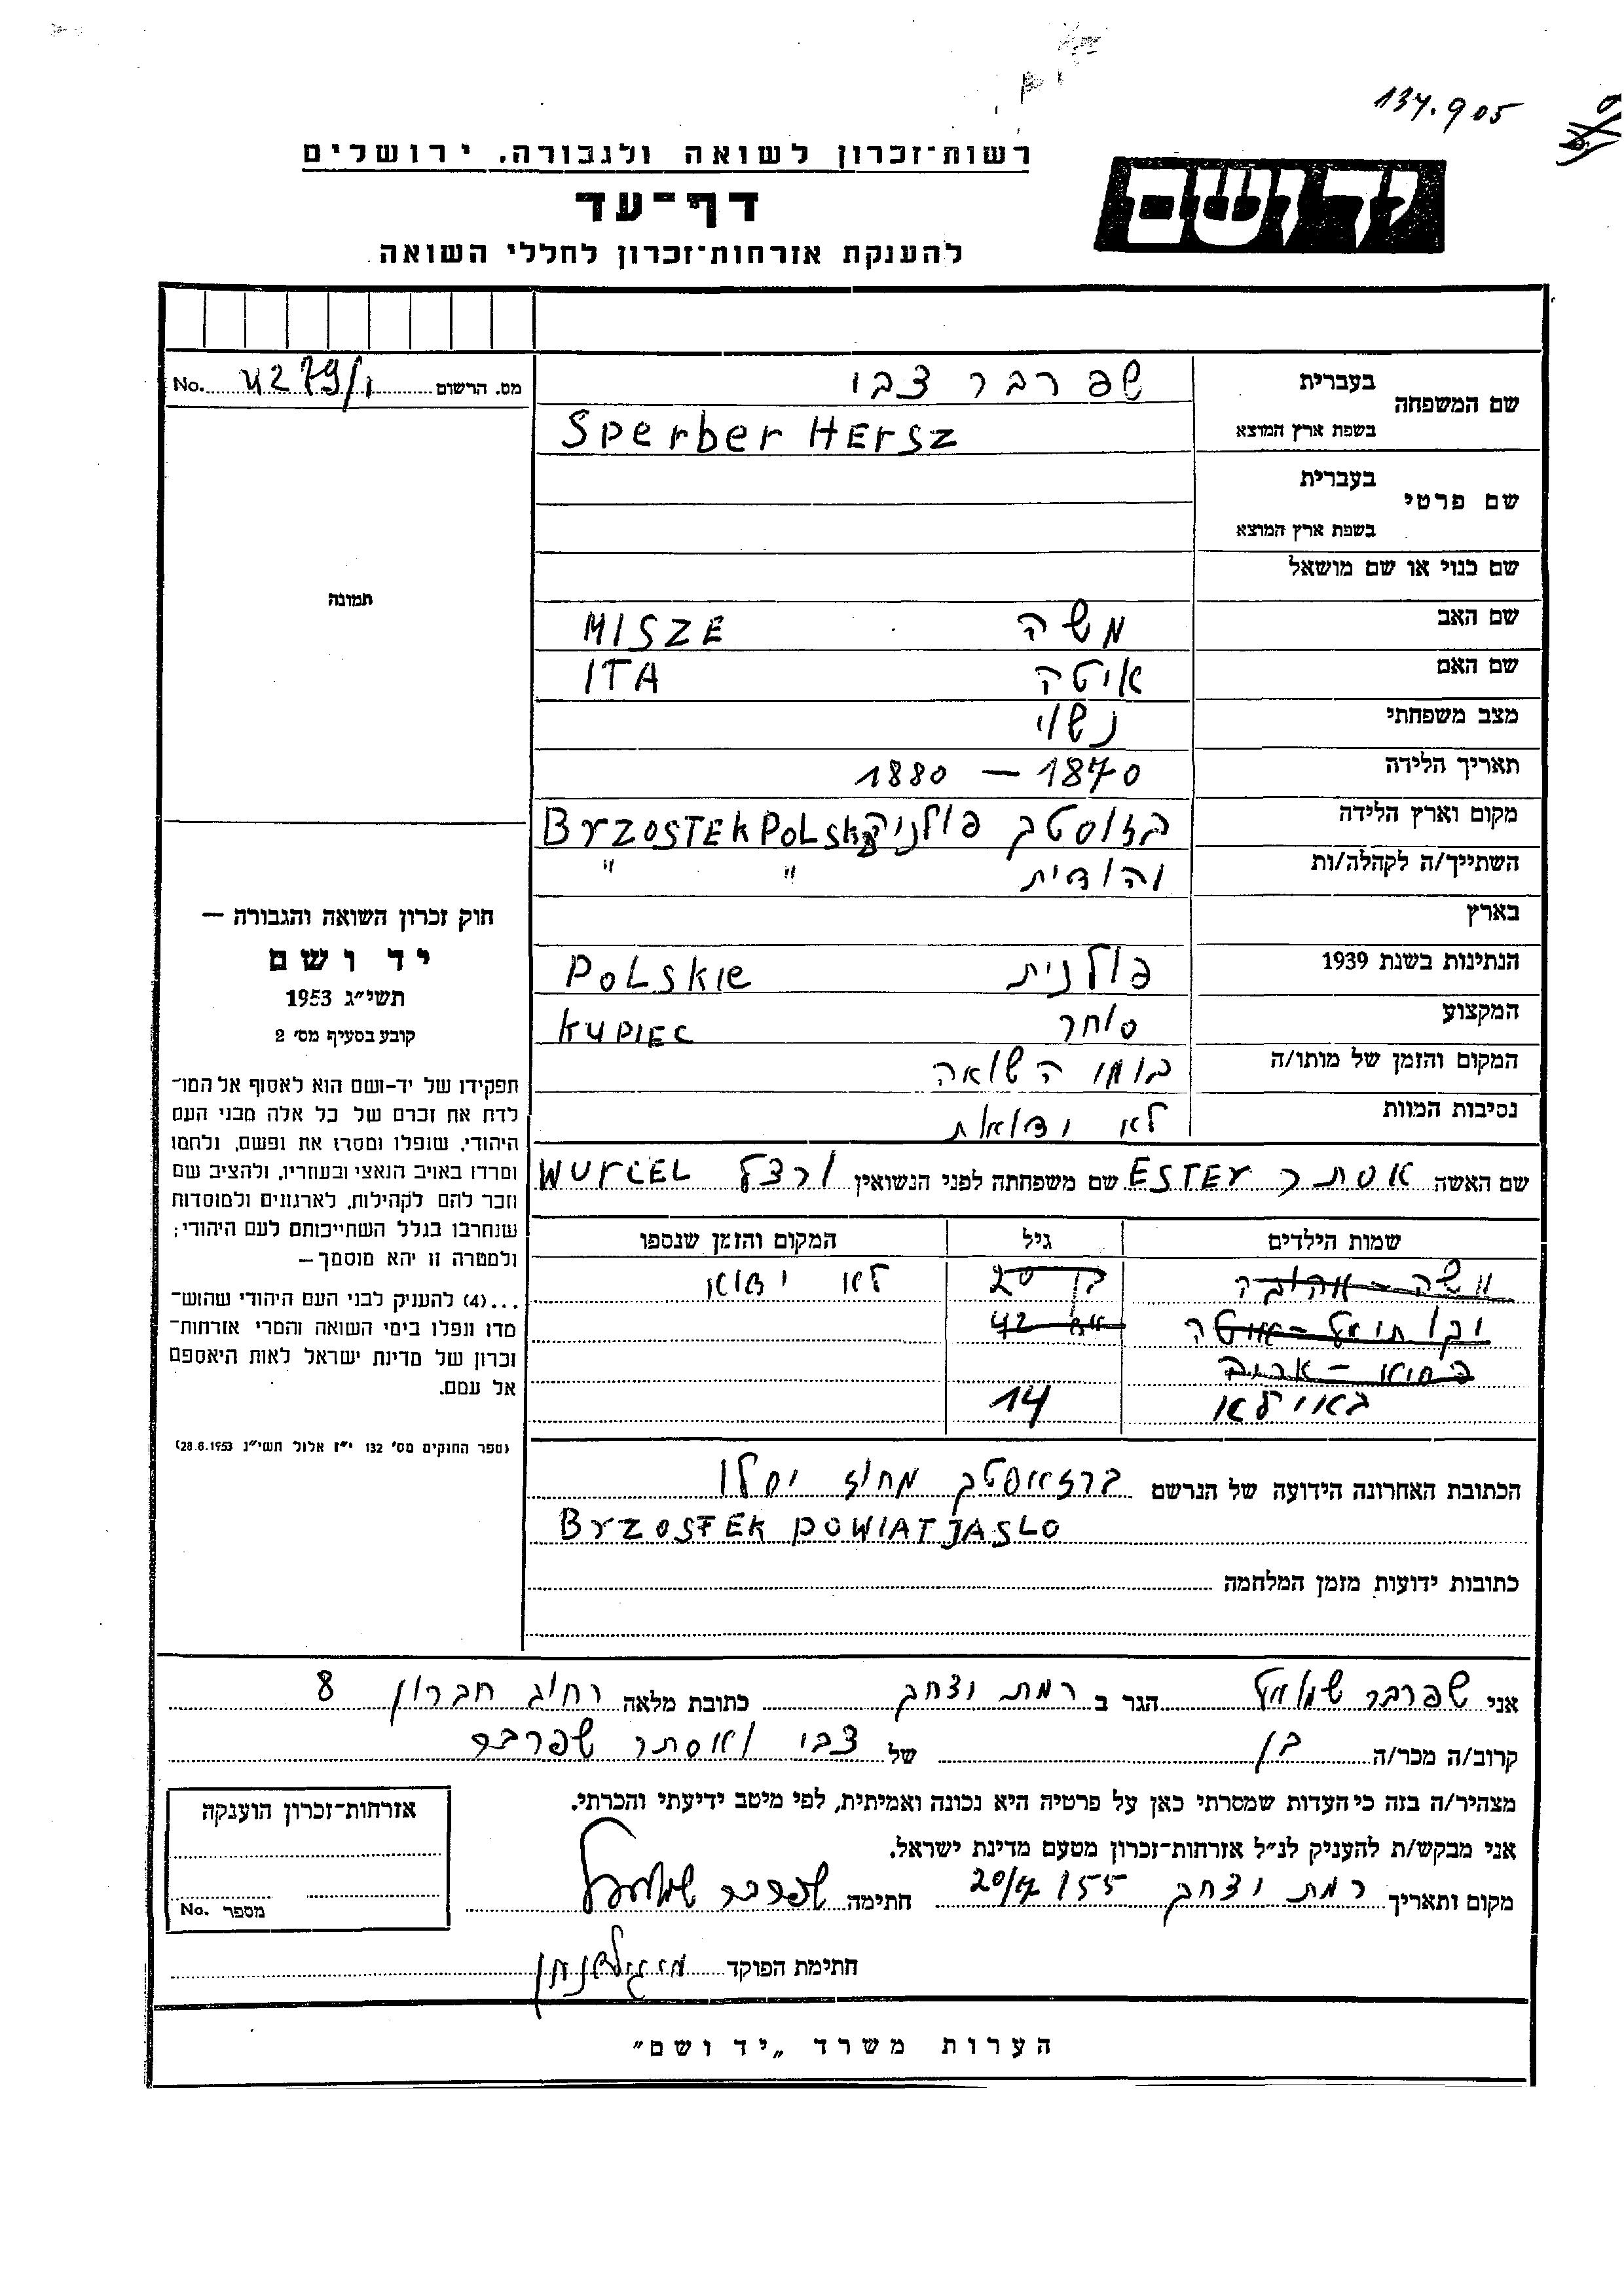 134.905
רשות־זכרון לשואה ולגבורה. ירושלים
יד ושם
דף־עד
להענקת אזרחות־זכרון לחללי השואה
מס. הרשום No.
שם המשפחה
בעברית שפרבר צבי
בשפת ארץ המוצא Sperber HERSZ
שם פרטי
בעברית
בשפת ארץ המוצא
שם כנוי או שם מושאל
שם האב משה MISZE
שם האם איטה ITA
מצב משפחתי נשוי
תאריך הלידה 1880 – 1870
מקום וארץ הלידה בזוסטק פולניה BrZOSTEK POLSKA
השתייך/ה לקהלה/ות יהודית " "
בארץ
הנתינות בשנת 1939 פולנית POLSKIE
המקצוע סוחר KUPIEC
המקום והזמן של מותו/ה בזמן השואה
נסיבות המוות לא ידועות
שם האשה אסתר ESTER שם משפחתה לפני הנשואין ורצל WURCEL
שמות הילדים גיל המקום והזמן שנספו
משה בן 20 לא ידוע
42
14
הכתובת האחרונה הידועה של הנרשם ברזאסטק מחוז יסלו
BrZOSTEK POWIAT JASLO
כתובות ידועות מזמן המלחמה
תמונה
חוק זכרון השואה והגבורה —
יד ושם
תשי״ג 1953
קובע בסעיף מס׳ 2
תפקידו של יד-ושם הוא לאסוף אל המו־
לדת את זכרם של כל אלה מבני העם
היהודי, שנפלו ומסרו את נפשם, נלחמו
ומרדו באויב הנאצי ובעוזריו, ולהציב שם
וזכר להם לקהילות, לארגונים ולמוסדות
שנחרבו בגלל השתייכותם לעם היהודי;
ולמטרה זו יהא מוסמך—
...(4) להעניק לבני העם היהודי שהוש־
מדו ונפלו בימי השואה והמרי אזרחות־
זכרון של מדינת ישראל לאות היאספם
אל עמם.
(ספר החוקים מס׳ 132 י״ז אלול תשי״ג 28.8.1953)
אני שפרבר שמואל הגר ב רמת יצחק כתובת מלאה רחוב חברון 8
קרוב/ה מכר/ה בן של צבי ואסתר שפרבר
מצהיר/ה בזה כי העדות שמסרתי כאן על פרטיה היא נכונה ואמיתית, לפי מיטב ידיעתי והכרתי.
אני מבקש/ת להעניק לנ״ל אזרחות־זכרון מטעם מדינת ישראל.
מקום ותאריך רמת יצחק חתימה שפרבר שמואל
חתימת הפוקד
אזרחות־זכרון הוענקה
מספר No.
הערות משרד „יד ושם״